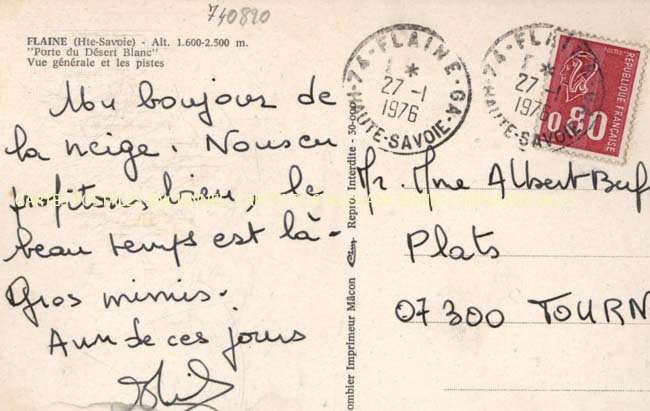 740820
FLAINE (Hte-Savoie) - Alt. 1.600-2.500 m.
"Porte du Désert Blanc"
Vue générale et les pistes
Un boujour de
la neige. Nous en
profitons bien, le
beau temps est là -
Gros mimis.
A un de ces jours
74-FLAINE-GA
27-1
1976
HAUTE-SAVOIE
74-FLAINE
27-1
1976
HAUTE-SAVOIE
RÉPUBLIQUE FRANÇAISE
0,80
Mr. Mne Albert
Plats
07300 TOURN
ombier Imprimeur Mâcon
Repro. Interdite - 30-00